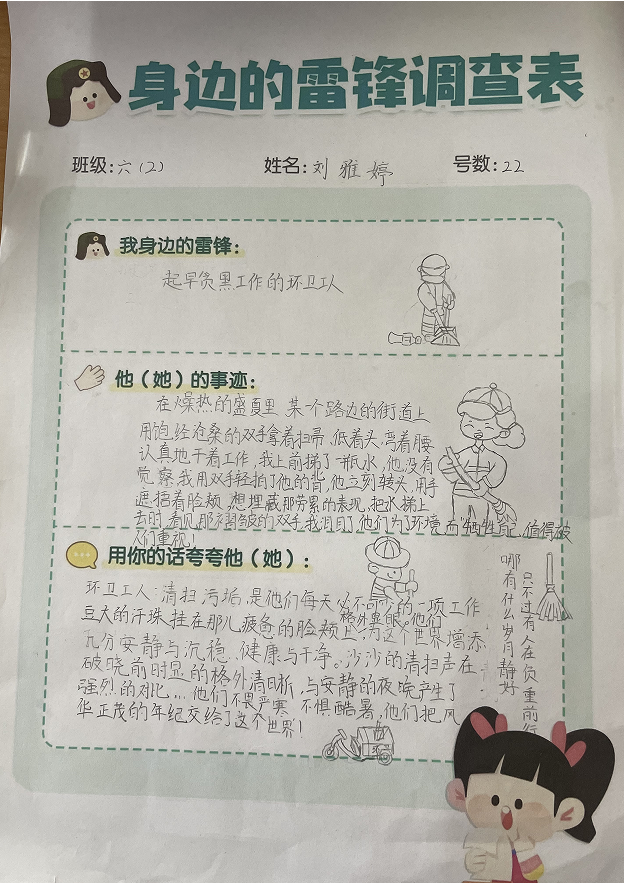 身边的雷锋调查表
班级:六(2) 姓名:刘雅婷 号数:22
我身边的雷锋:
起早贪黑工作的环卫工人
他(她)的事迹:
在燥热的盛夏里 某个路边的街道上
用饱经沧桑的双手拿着扫帚,低着头,弯着腰
认真地干着工作,我上前递了一瓶水,他没有
觉察,我用双手轻拍了他的背,他立刻转头,用手
遮挡着脸颊,想埋藏那劳累的表现,把水递上
去时,看见那褶皱的双手,我泪目了,他们为了环境而牺牲自己,值得被
人们重视!
用你的话夸夸他(她):
环卫工人:清扫污垢,是他们每天必不可少的一项工作
豆大的汗珠,挂在那儿疲惫的脸颊上,格外显眼。他们
为这个世界增添
几分安静与沉稳、健康与干净。沙沙的清扫声在
破晓前时显的格外清晰,与安静的夜晚产生了
强烈的对比...他们不畏严寒 不惧酷暑,他们把风
华正茂的年纪交给了这个世界!
哪有什么岁月静好
只不过有人在负重前行